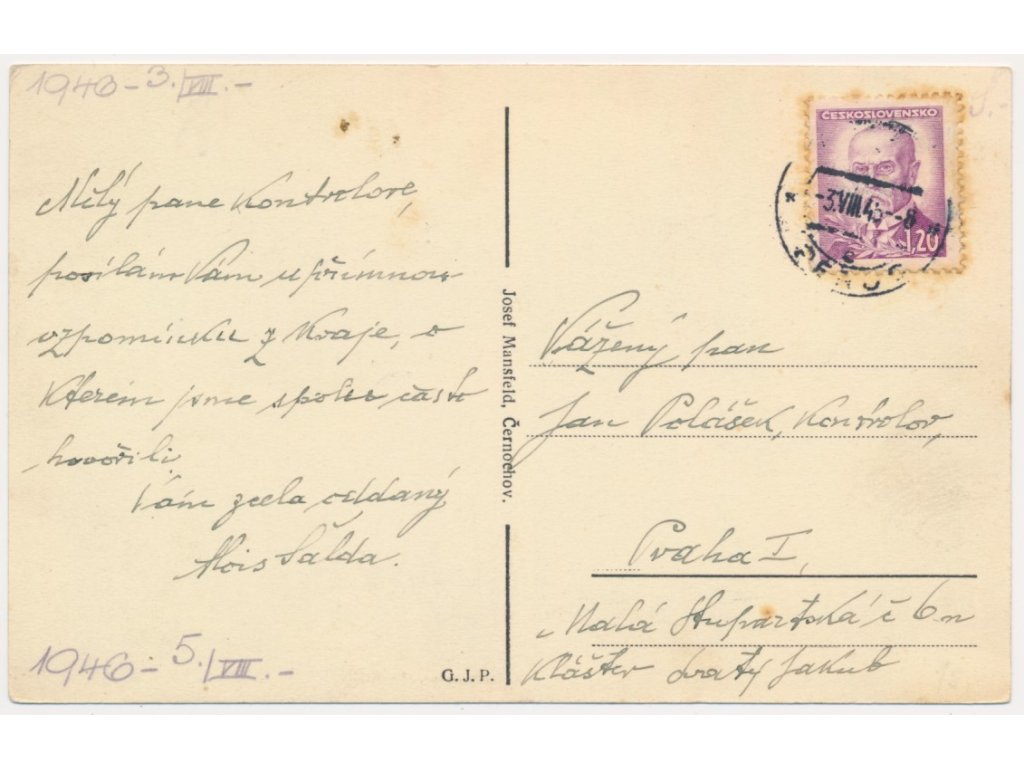 1946 - 3./VIII. -
Milý pane Kontrolore,
posílám Vám upřímnou
vzpomínku z Kraje, o
Kterém jsme spolu často
hovořili
Vám zcela oddaný
Alois Šalda.
1946 - 5./VIII. -
G.J.P.
Josef Mansfeld, Černochov.
ČESKOSLOVENSKO
-3.VIII.46--8
1,20
Vážený pan
Jan Polášek, Kontrolor,
Praha I,
Malá Stupartská č 6 n
Klášter svatý Jakub